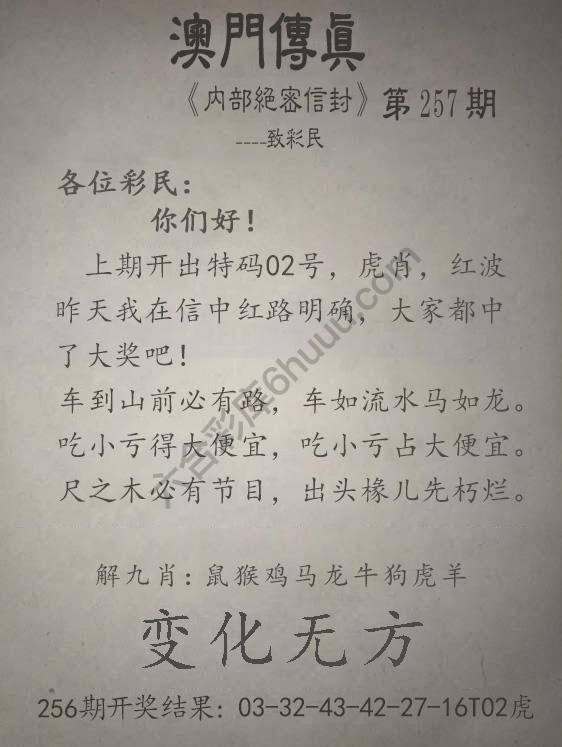 澳門傳眞
《内部絕密信封》第257期
----致彩民
各位彩民：
你们好！
上期开出特码02号，虎肖，红波
昨天我在信中红路明确，大家都中
了大奖吧！
车到山前必有路，车如流水马如龙。
吃小亏得大便宜，吃小亏占大便宜。
尺之木必有节目，出头椽儿先朽烂。
解九肖：鼠猴鸡马龙牛狗虎羊
变化无方
256期开奖结果：03-32-43-42-27-16T02虎
六合彩库6huuu.com